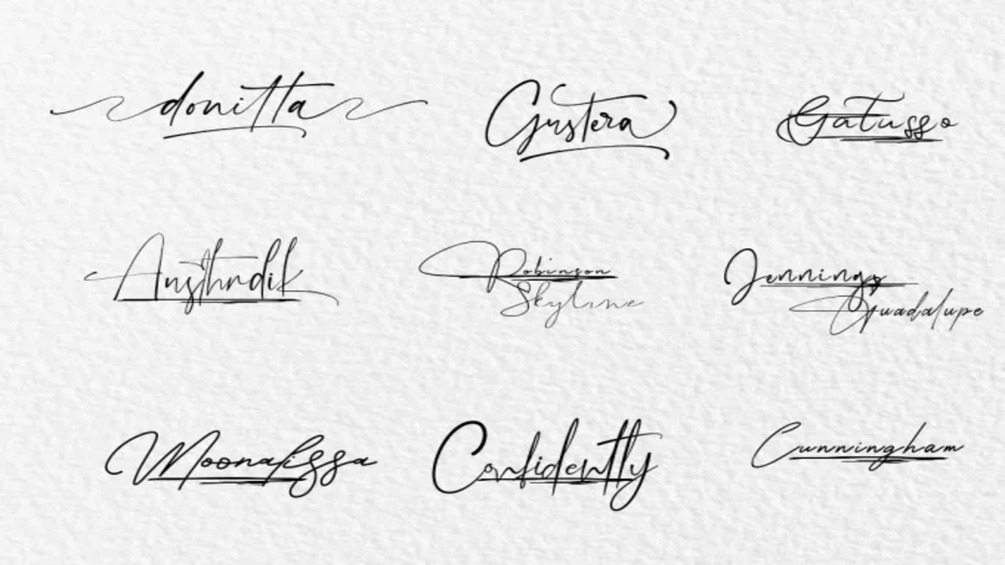 donitta
Gustera
Gatusso
Robinson
Skyline
Jennings
Guadalupe
Moonalissa
Confidenttly
Cunningham